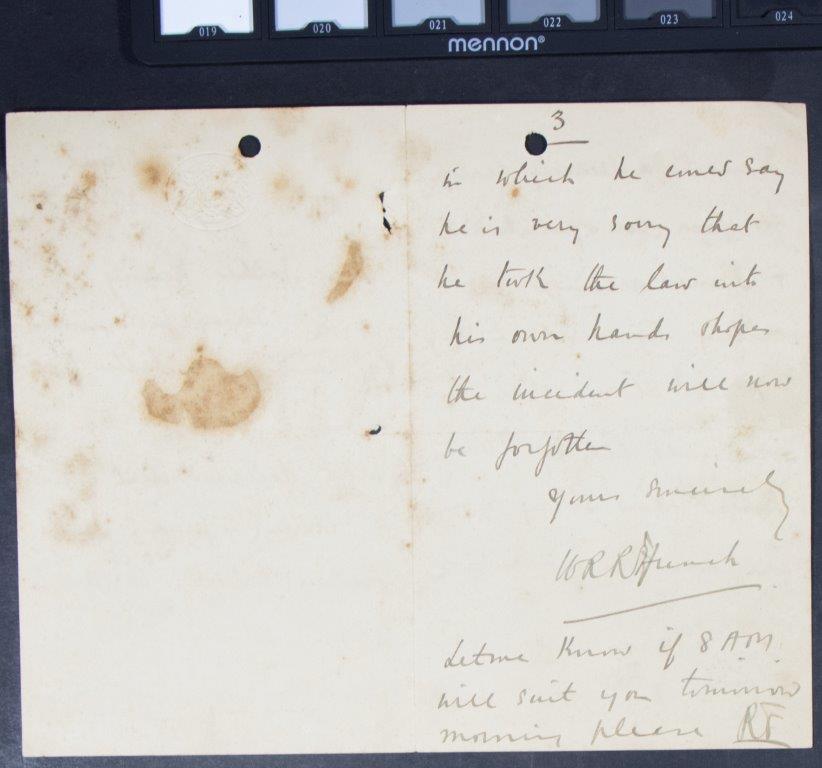 019 020 021 022 023 024
mennon®
3
in which he could say
he is very sorry that
he took the law into
his own hands & hopes
the incident will now
be forgotten
Yours sincerely
WRR
Let me know if 8 AM
will suit you tomorrow
morning please